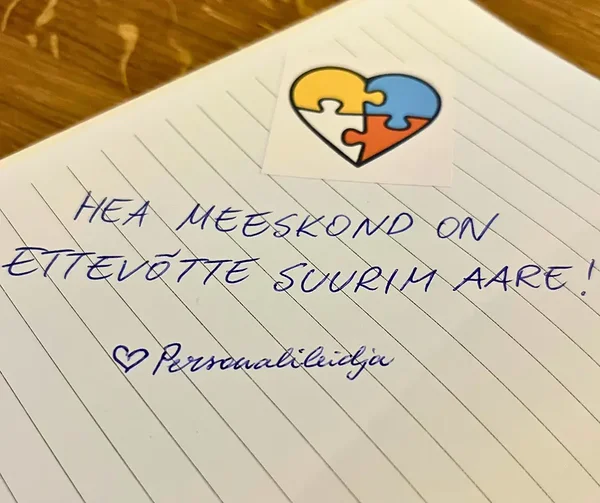 HEA MEESKOND ON
ETTEVÕTTE SUURIM AARE!
♡ Personalileidja